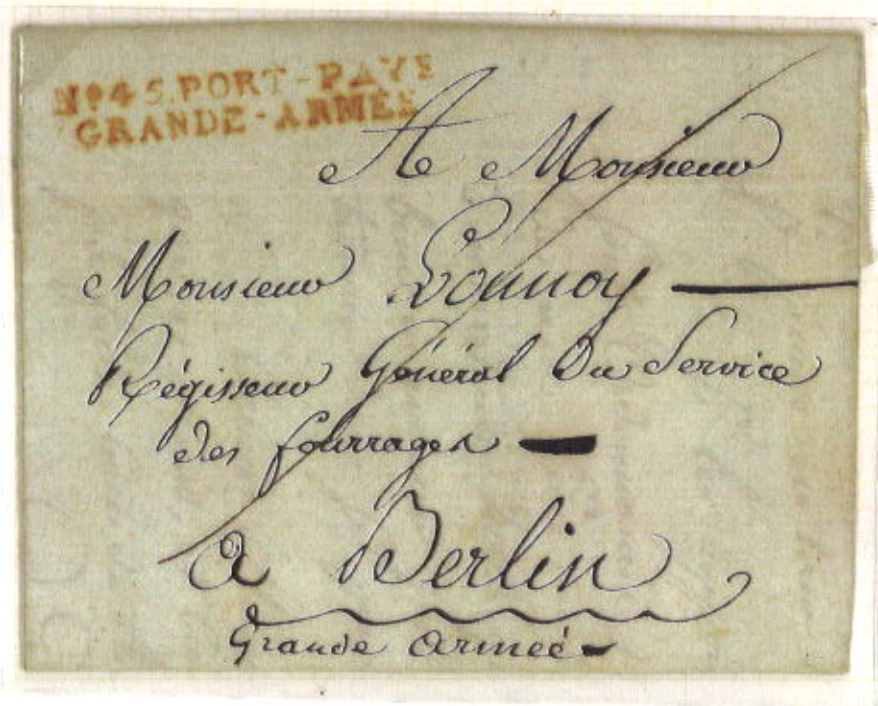 Nº 45. PORT-PAYÉ
GRANDE-ARMÉE
A Monsieur
Monsieur Lonnoy
Régisseur Général Du Service
des fourrages
a Berlin
Grande Armée